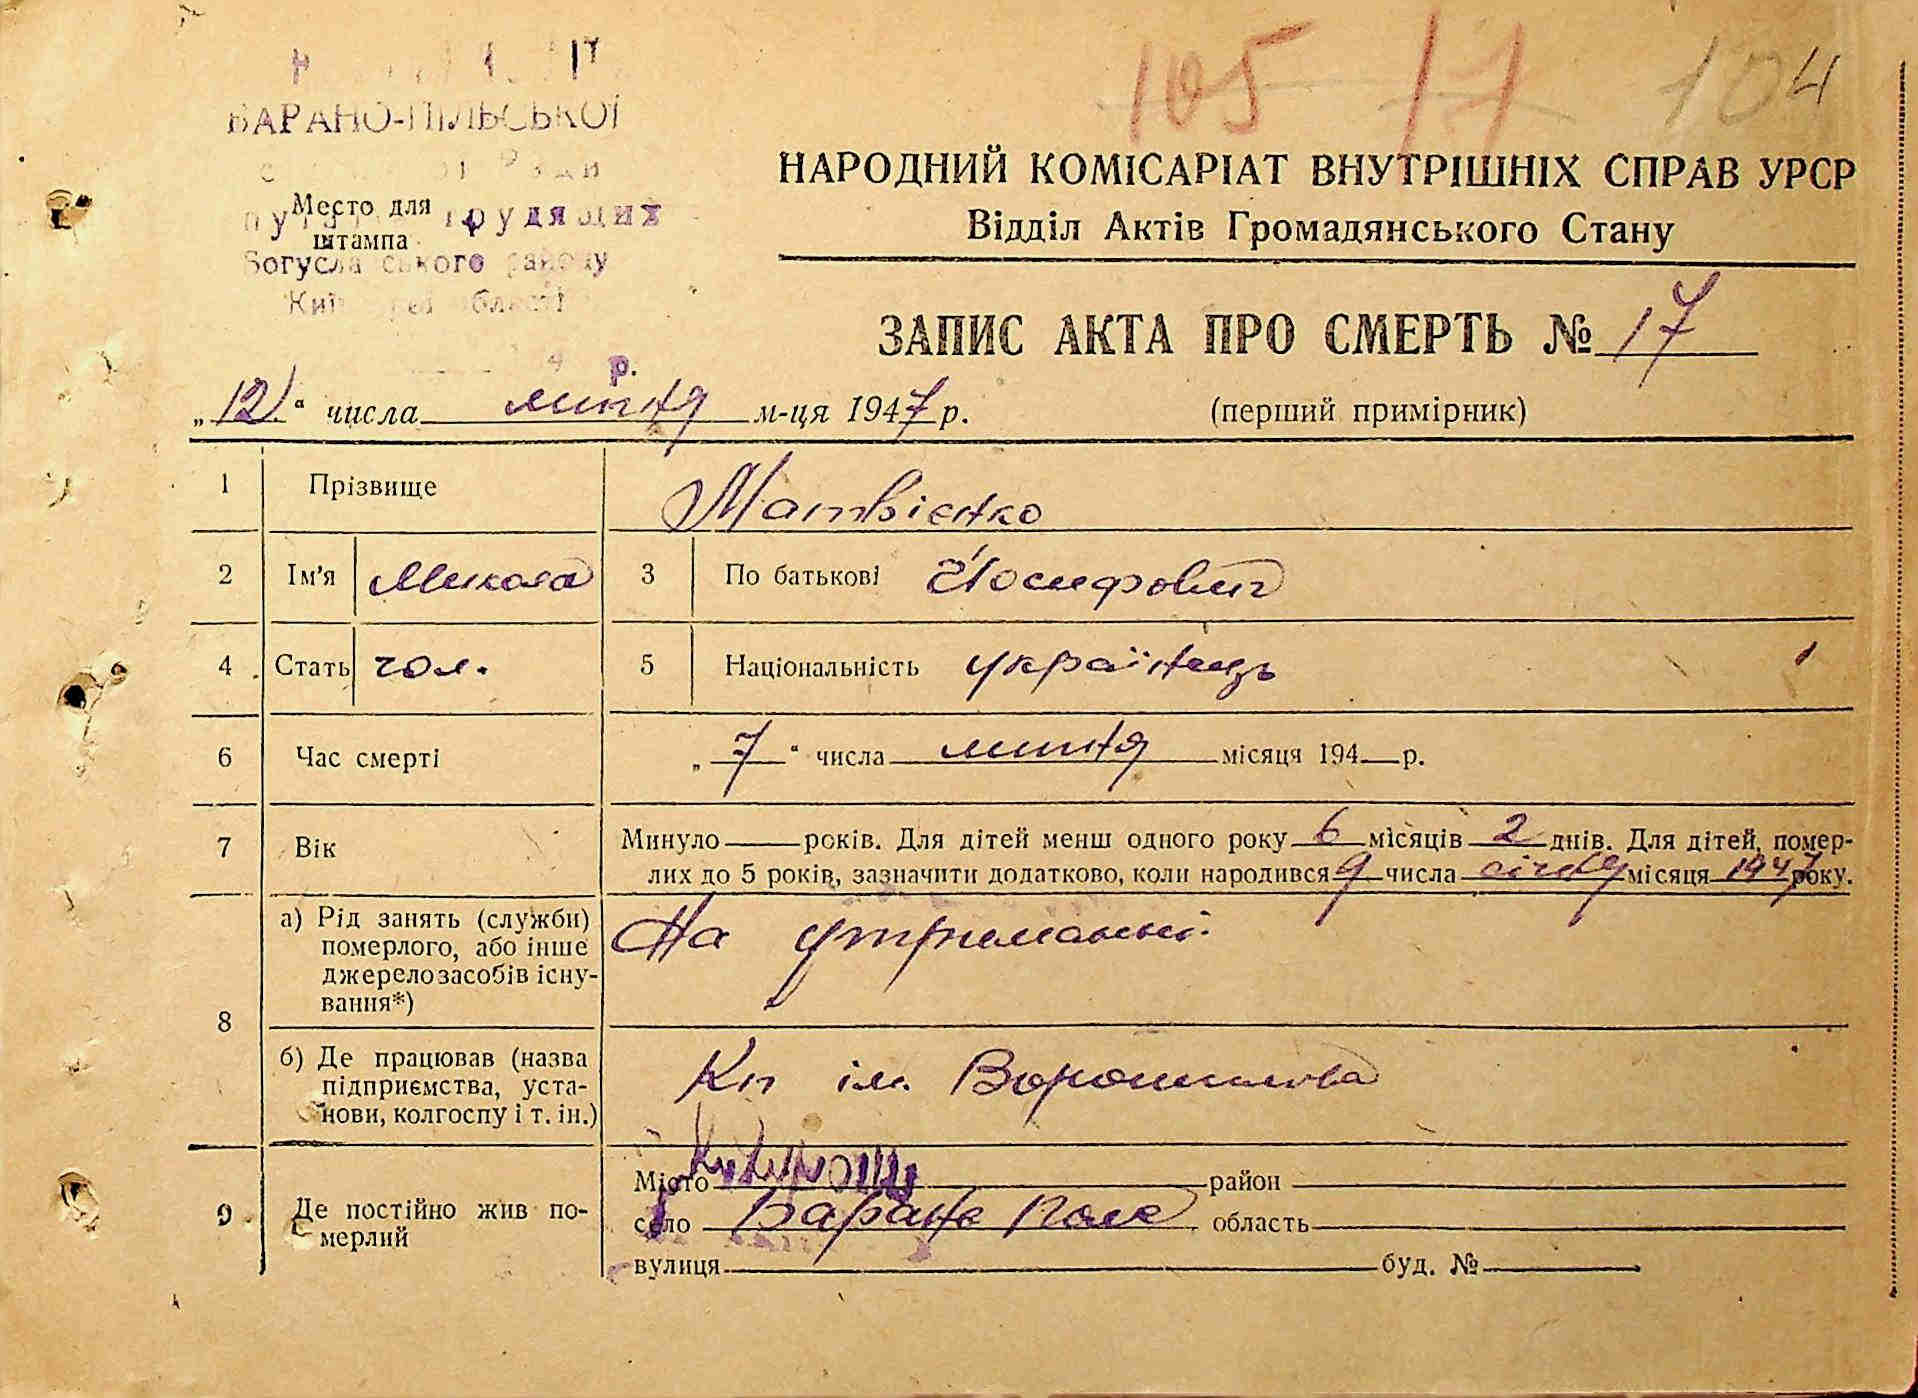 105 17 104
БАРАНО-ПІЛЬСЬКОЇ
Ради
Место для трудящих
штампа
Богуславського району
області
р.
НАРОДНИЙ КОМІСАРІАТ ВНУТРІШНІХ СПРАВ УРСР
Відділ Актів Громадянського Стану
ЗАПИС АКТА ПРО СМЕРТЬ № 17
„12“ числа липня м-ця 1947 р. (перший примірник)
1 Прізвище Матвієнко
2 Ім’я Микола 3 По батькові Йосифович
4 Стать чол. 5 Національність українець
6 Час смерті „7“ числа липня місяця 194 р.
7 Вік Минуло — років. Для дітей менш одного року 6 місяців 2 днів. Для дітей, помер-
лих до 5 років, зазначити додатково, коли народився 9 числа січня місяця 1947 року.
8 а) Рід занять (служби) померлого, або інше джерело засобів існу-вання*) На утриманні
б) Де працював (назва підприємства, уста-нови, колгоспу і т. ін.) Кп ім. Ворошилова
9 Де постійно жив по-мерлий Місто район
село Баране Поле область
вулиця буд. №